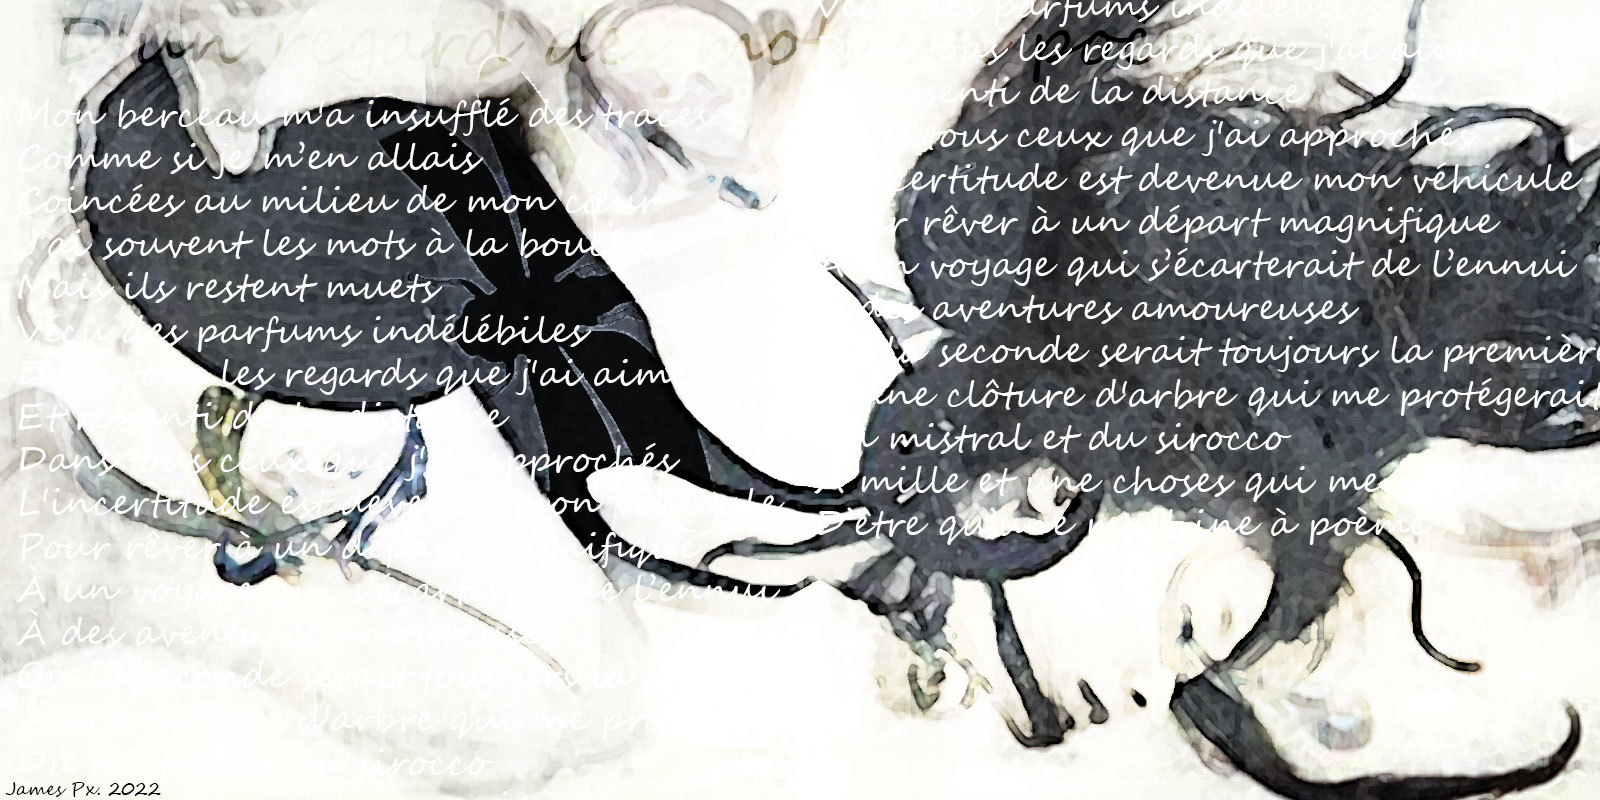 D'un regard des mot
Mon berceau m'a insufflé des traces
Comme si je m'en allais
Coincées au milieu de mon cœur
J'ai souvent les mots à la bouche
Mais ils restent muets
Vécu des parfums indélébiles
Dans tous les regards que j'ai aimés
Et ressenti de la distance
Dans tous ceux que j'ai approchés
L'incertitude est devenue mon véhicule
Pour rêver à un départ magnifique
À un voyage qui s'écarterait de l'ennui
À des aventures amoureuses
Où la seconde serait toujours la
À une clôture d'arbre qui me pro
Du mistral et du sirocco
Vécu des parfums indélébiles
Dans tous les regards que j'ai aimés
ssenti de la distance
tous ceux que j'ai approchés
certitude est devenue mon véhicule
r rêver à un départ magnifique
À un voyage qui s'écarterait de l'ennui
des aventures amoureuses
la seconde serait toujours la première
une clôture d'arbre qui me protégerait
mistral et du sirocco
À mille et une choses qui me
D'être qu'une machine à poème
James Px. 2022